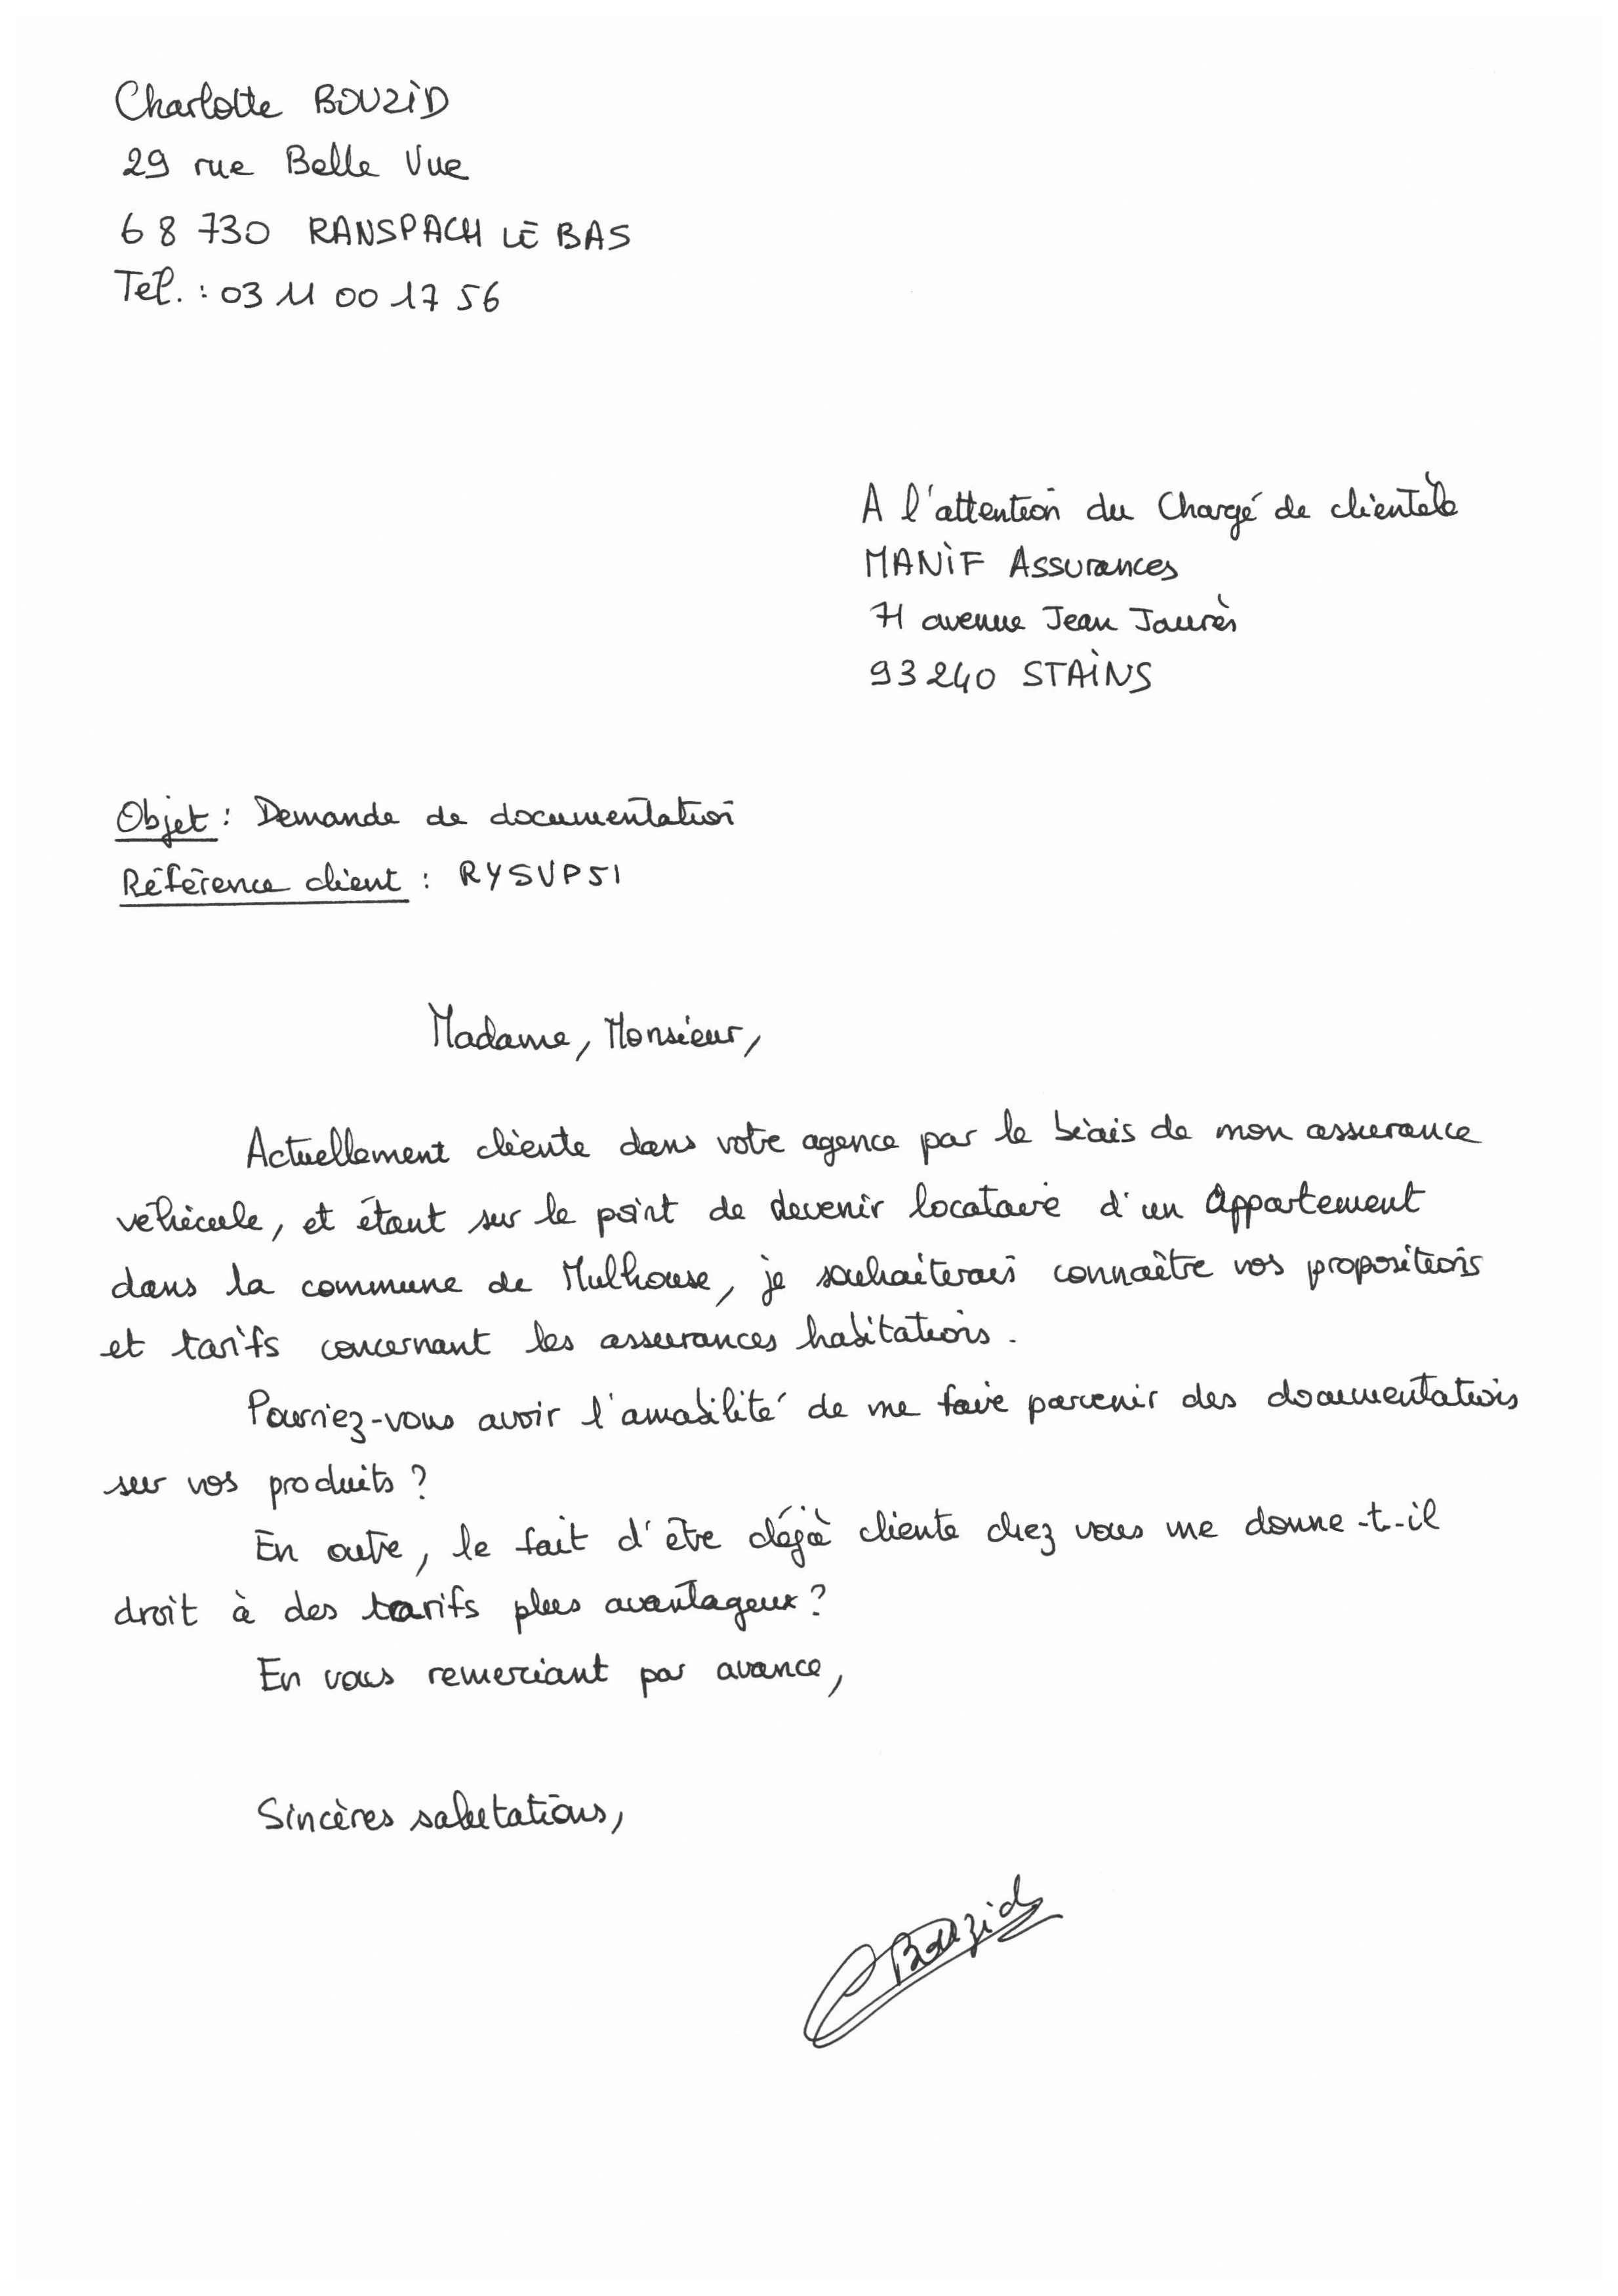 Charlotte BOUZID
29 rue Belle Vue
68 730 RANSPACH LE BAS
Tél. : 03 11 00 17 56
A l'attention du Chargé de clientèle
MANIF Assurances
71 avenue Jean Jaurès
93240 STAINS
Objet : Demande de documentation
Référence client : RYSVP51
Madame, Monsieur,
Actuellement cliente dans votre agence par le biais de mon assurance
véhicule, et étant sur le point de devenir locataire d'un Appartement
dans la commune de Mulhouse, je souhaiterais connaître vos propositions
et tarifs concernant les assurances habitations.
Pourriez-vous avoir l'amabilité de me faire parvenir des documentations
sur vos produits ?
En outre, le fait d'être déjà cliente chez vous me donne-t-il
droit à des tarifs plus avantageux ?
En vous remerciant par avance,
Sincères salutations,
CBouzid